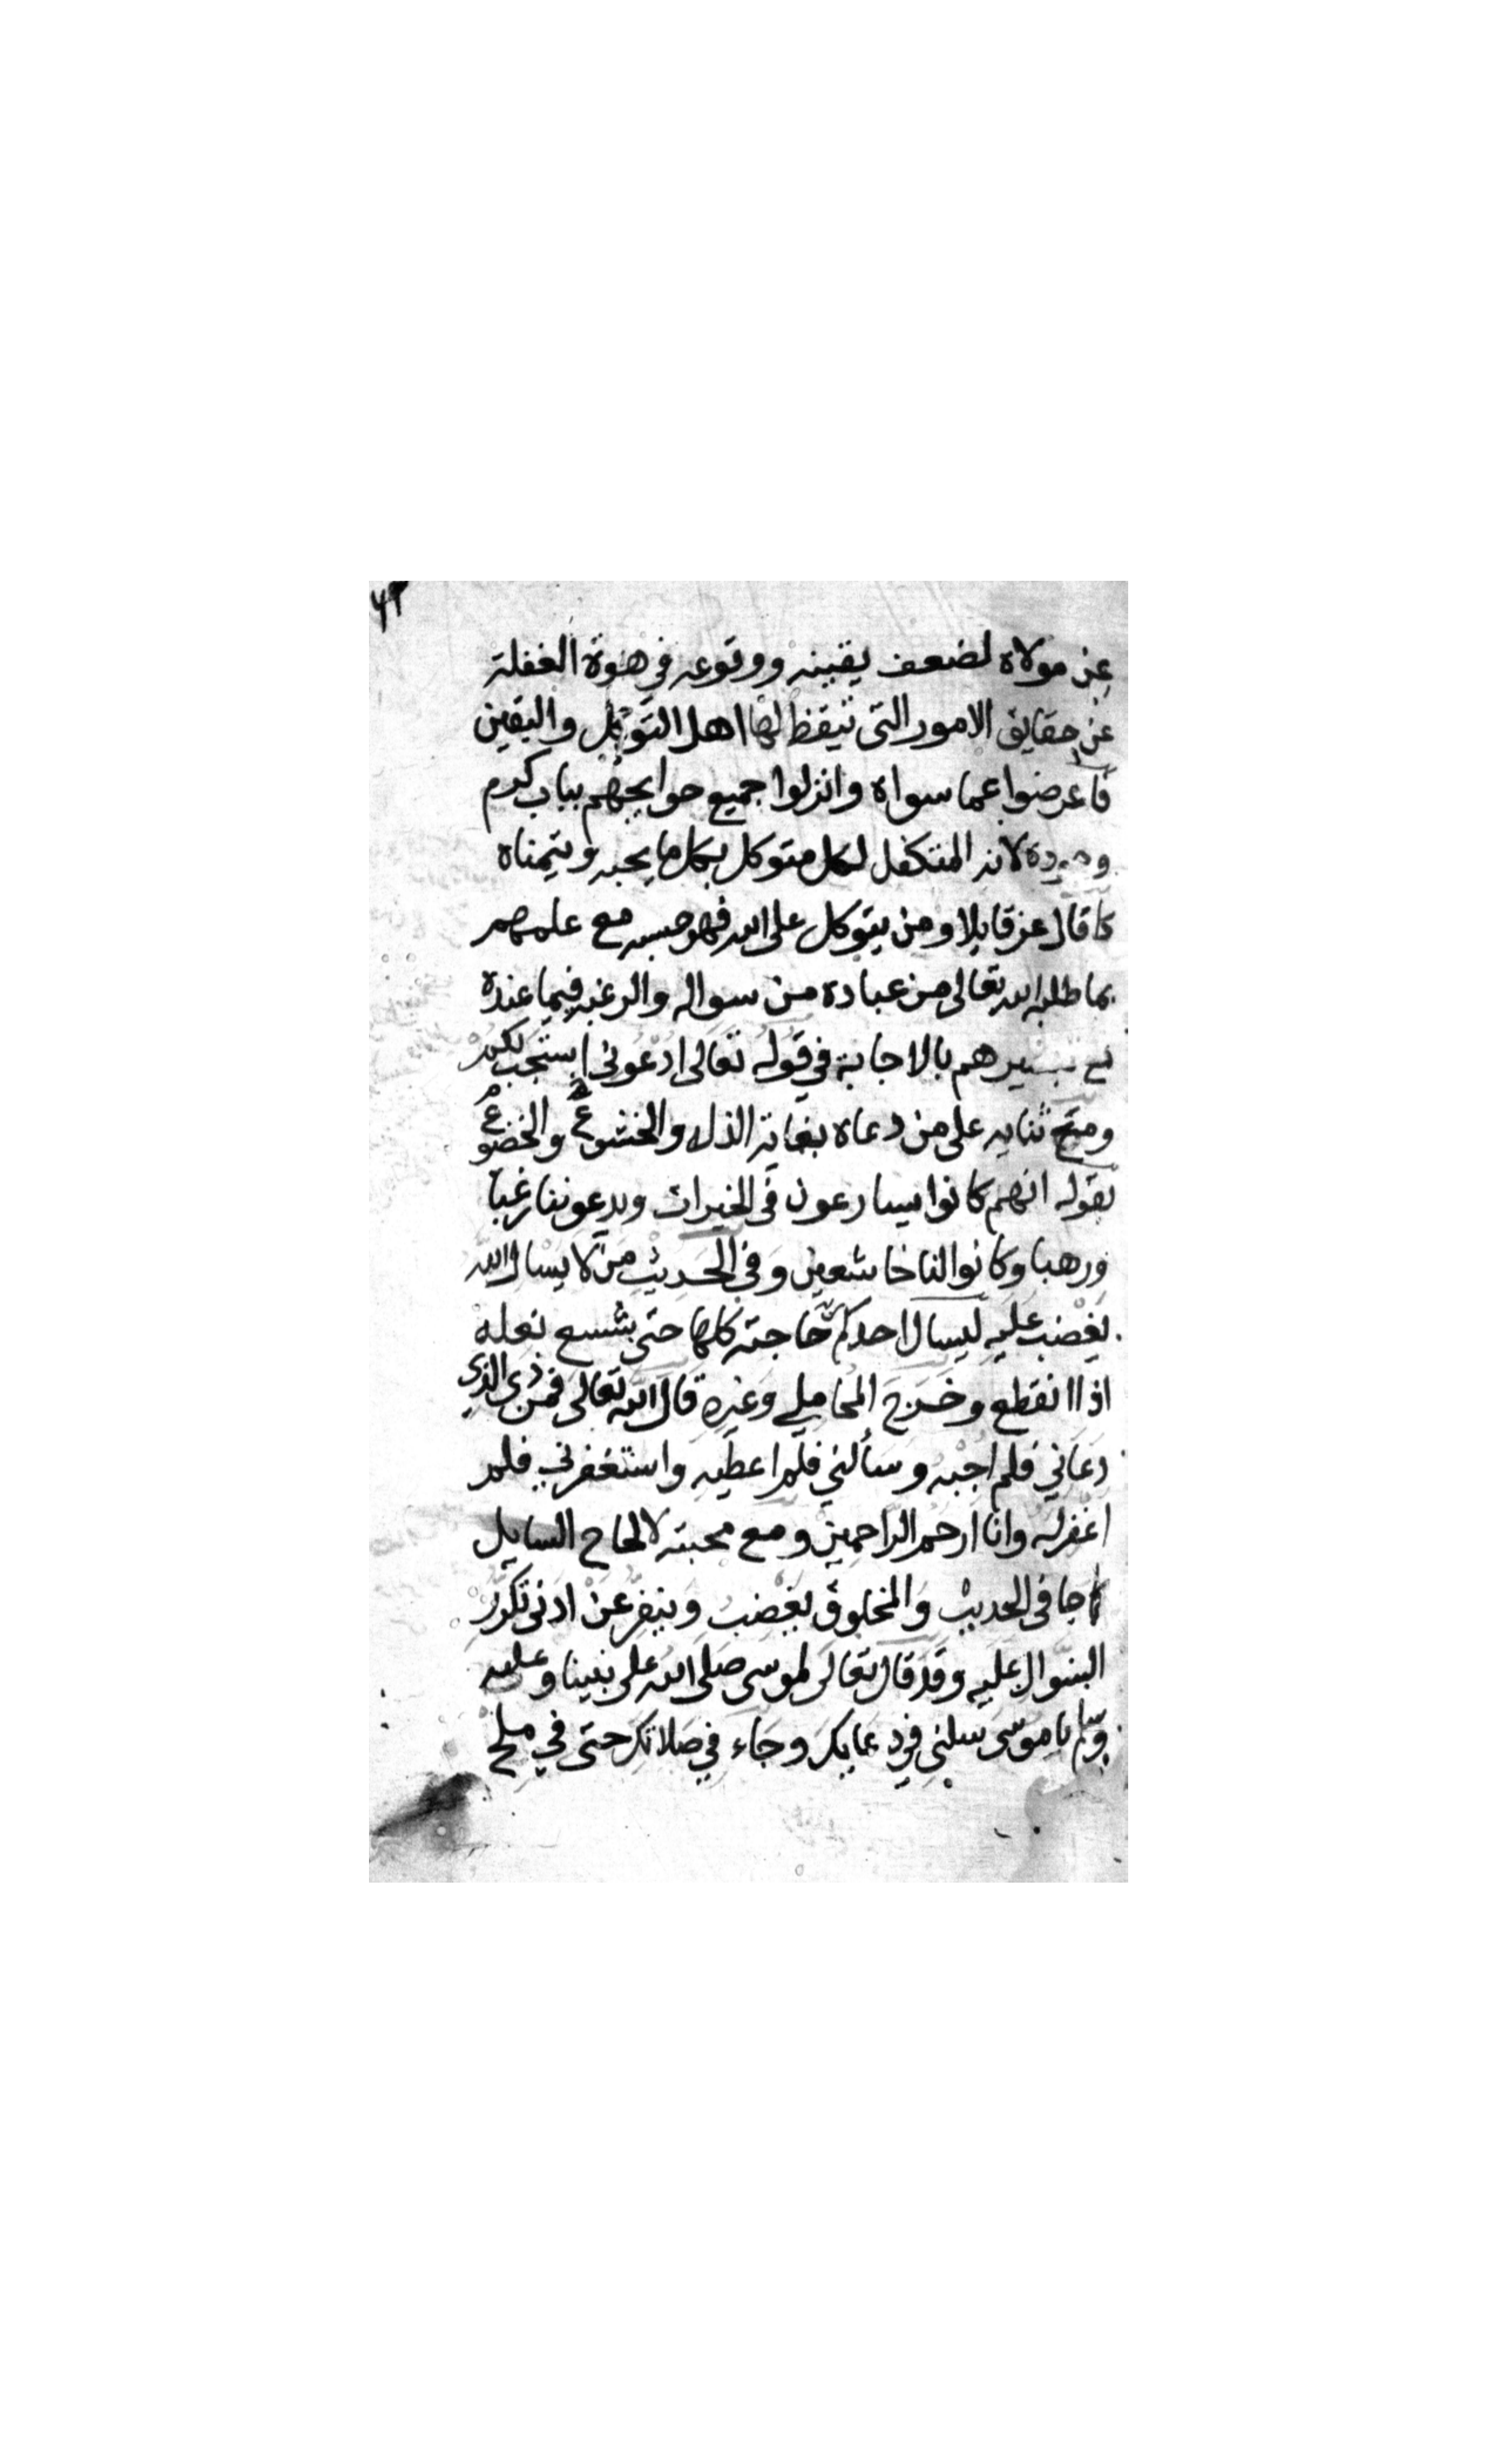 عن مولاه لضعف يقينه ووقوعه في هوة الغفلة
عن حقايق الامور التي تيقظ لها اهل التوكل واليقين
فاعرضوا عما سواه وانزلوا جميع حوايجهم بباب كرم
وجوده لانه المتكفل لكل متوكل بكل ما يحبه ويتمناه
كما قال عز قايلا ومن يتوكل على الله فهو حسبه مع علمهم
بما طلبه الله تعالى من عباده من سواله والرغبه فيما عنده
مع تبشيرهم بالاجابة في قوله تعالى ادعوني استجب لكم
ومع ثنايه على من دعاه بغاية الذل والخشوع والخضوع
بقوله انهم كانوا يسارعون في الخيرات ويدعوننا رغبا
ورهبا وكانوا لنا خاشعين وفي الحديث من لا يسال الله
يغضب عليه ليسال احدكم حاجته كلها حتى شسع نعله
اذا انقطع وخرج المحاملي وغيره قال الله تعالى فمن ذى الذي
دعاني فلم اجبه وسألني فلم اعطيه واستغفرني فلم
اغفر له وانا ارحم الراحمين ومع محبته لالحاح السايل
كما جا في الحديث والمخلوق يغضب وينفر عن ادنى تكرر
السوال عليه وقد قال تعالى لموسى صلى الله على نبينا وعليه
وسلم يا موسى سلني في دعايك وجاء في صلاتك حتى في ملح